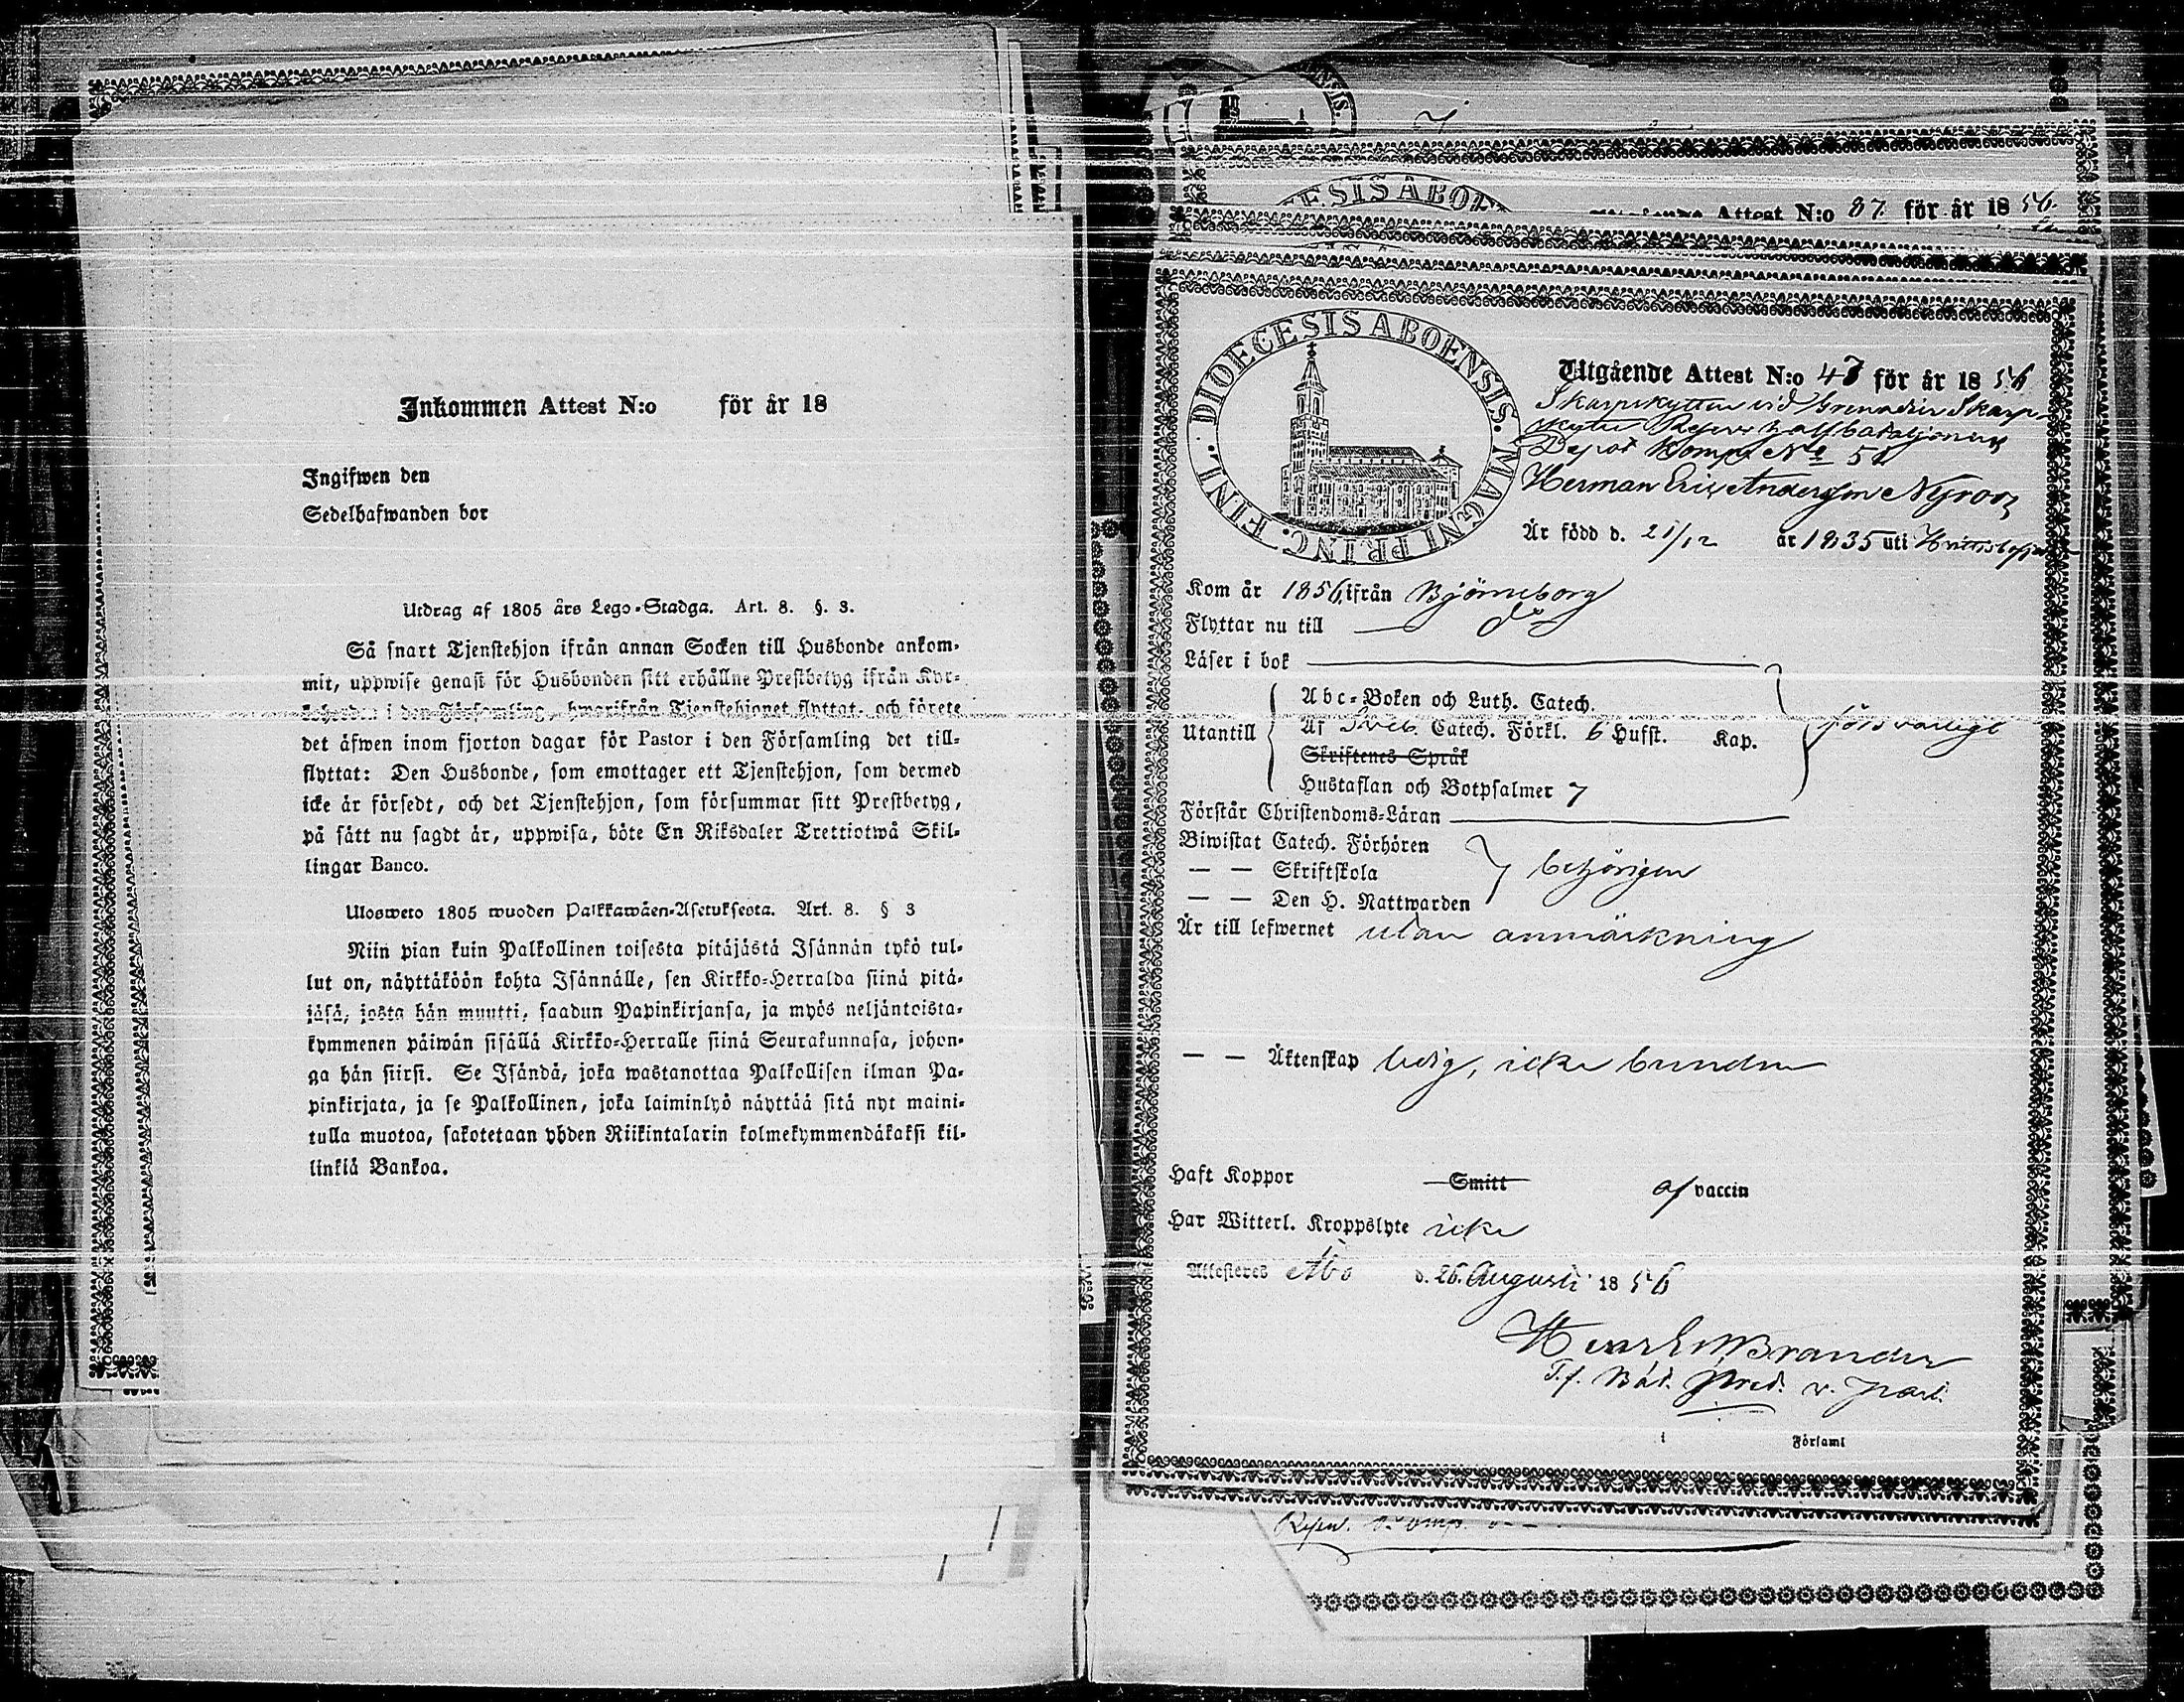 Inkommen Attest N:o för år 18
Ingifwen den
Sedelhafwanden bor
Utdrag af 1805 års Lego-Stadga. Art. 8. §. 3.
Så snart Tjenstehjon ifrån annan Socken till Husbonde ankom-
mit, uppwise genast för Husbonden sitt erhållne Prestbetyg ifrån Kyr-
koherden i den Församling, hwarifrån Tjenstehjonet flyttat, och förete
det äfwen inom fjorton dagar för Pastor i den Församling det till-
flyttat: Den Husbonde, som emottager ett Tjenstehjon, som dermed
icke är försedt, och det Tjenstehjon, som försummar sitt Prestbetyg,
på sätt nu sagdt är, uppwisa, böte En Riksdaler Trettiotwå Skil-
lingar Banco.
Ulosweto 1805 wuoden Palkkawäen-Asetuksesta. Art. 8. § 3
Niin pian kuin Palkollinen toisesta pitäjästä Isännän tykö tul-
lut on, näyttäköön kohta Isännälle, sen Kirkko-Herralda siinä pitä-
jäsä, josta hän muutti, saadun Papinkirjansa, ja myös neljäntoista-
kymmenen päiwän sisällä Kirkko-Herralle siinä Seurakunnasa, johon-
ga hän siirsi. Se Isändä, joka wastanottaa Palkollisen ilman Pa-
pinkirjata, ja se Palkollinen, joka laiminlyö näyttää sitä nyt maini-
tulla muotoa, sakotetaan yhden Riikintalarin kolmekymmendäkaksi kil-
linkiä Bankoa.
Attest N:o 87. för år 1856.
DIOECESIS ABOENSIS. MAGNI PRINC. FINL.
Utgående Attest N:o 43 för år 1856
Skarpskytten vid Grenadier Skarp-
skytte Reserv bataljonens
Depot Komp. No 58
Herman Eric Andersson Nyroos
Är född d. 21/12 år 1835 uti
Kom år 1856 ifrån Björneborg
Flyttar nu till — do
Läser i bok
Utantill
Abc-Boken och Luth. Catech.
Af Sveb. Catech. Förkl. 6 Hufst. Kap.
Skriftenes Språk
Hustaflan och Botpsalmer 7
försvarligt
Förstår Christendoms-Läran
Biwistat Catech. Förhören
— — Skriftskola
— — Den H. Nattwarden
behörigen
Är till lefwernet utan anmärkning
— — Äktenskap ledig, icke bunden
Haft Koppor Smitt af vaccin
Har Witterl. Kroppslyte icke
Attesteras Åbo d. 26. Augusti 1856
Brander
T.f. Bat. Pred. v. Past.
i Församl